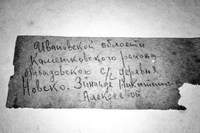 Ивановской области
Камешковского района
с/с деревня
Новско. Зинаиде Никитичне
Алексеевой